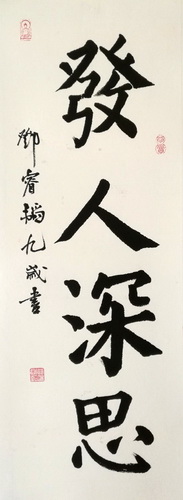 發人深思
鄧睿韜九歲書